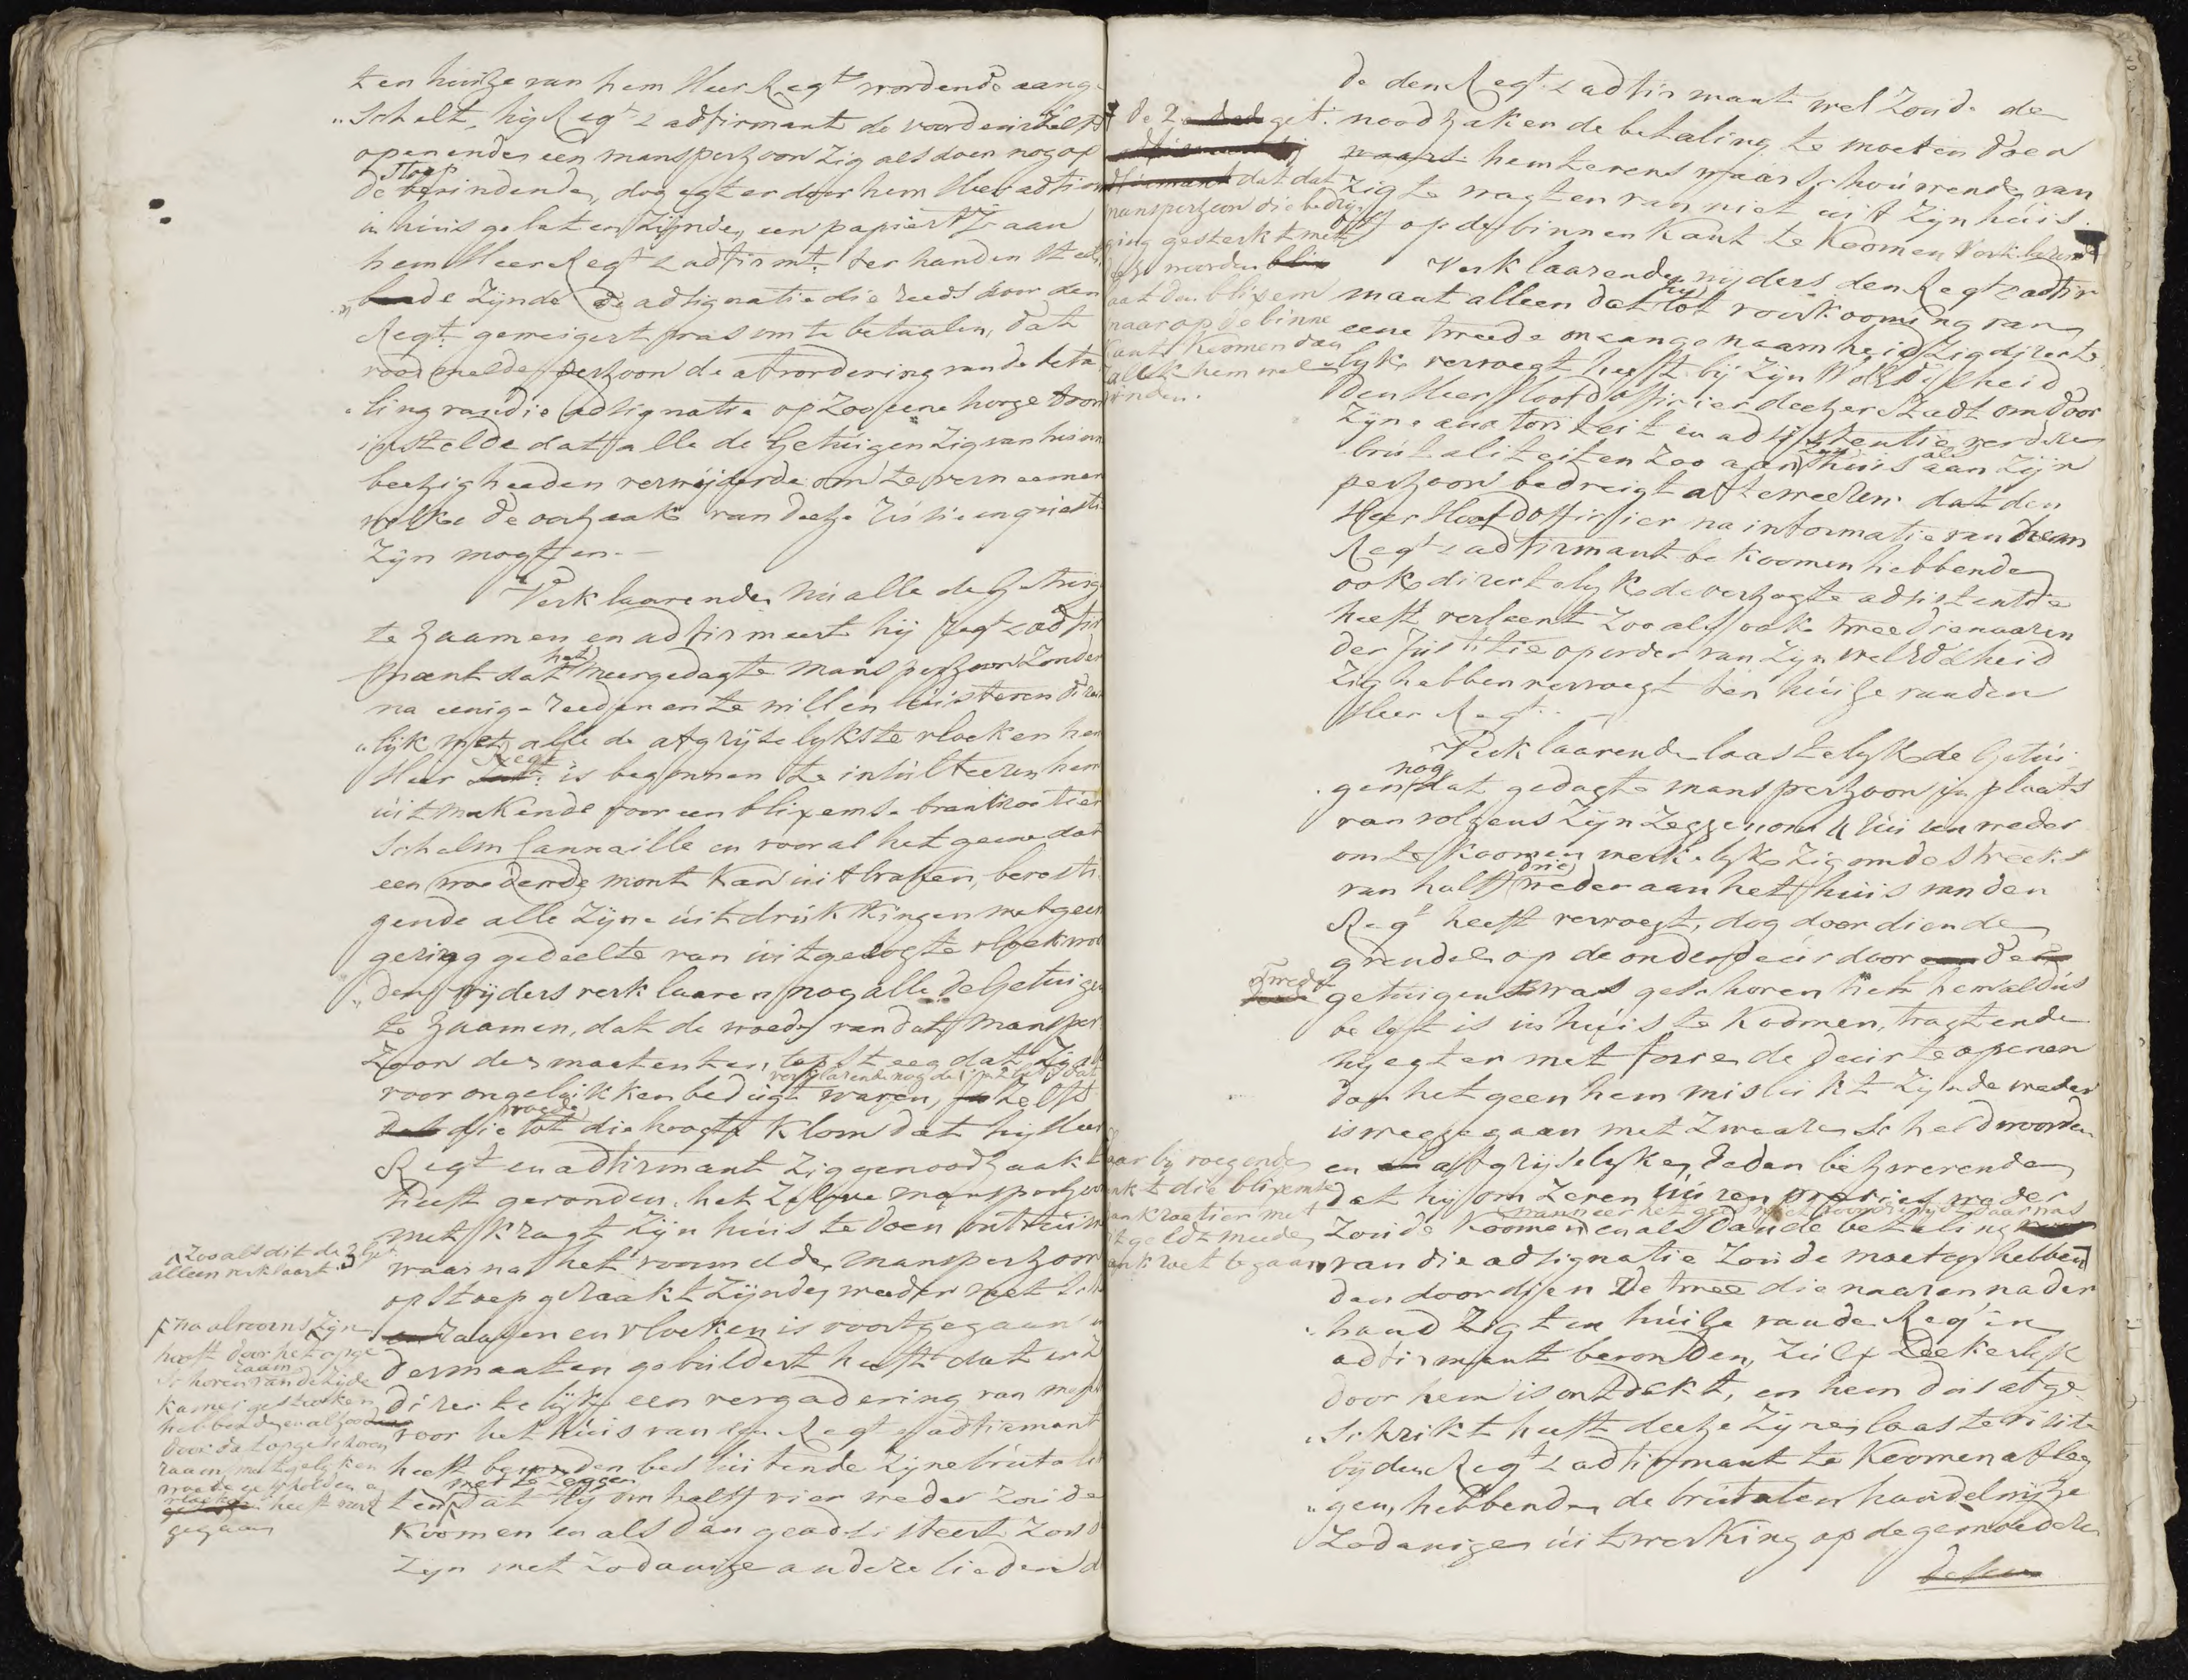 ten huise van hem Heer Reqt wordende aange
„schelt, hij Reqt & adfirmant de voordeur zelfs
openende, een manspersoon zig als doen nog op
de stoep bevindende, dog egter door hem Heer adfirm
in huis gelaten zijnde, een papiertje aan
hem Heer Reqt & adfirmt. ter handen stelde
zijnde de adsignatie die reeds door den
Reqt. geweigert was om te betaalen, dat
voormelde persoon de afvordering van de beta
„ling van die adsignatie op zoo eene hooge toon
instelde dat alle de Getuigen zig van hunne
beezigheeden verwijderde om te verneemen
welke de oorzaak van deeze
zijn mogten. —
Verklaarende nu alle de Getuige
te zaamen en adfirmeert hij Reqt & adfir
mant dat het meergedagte manspersoon zonder
na eenige reedenen te willen luisteren direc
„lijk met alle de afgrijselykste vloeken hem
Heer Reqt. is begonnen te insulteeren hem
uitmakende voor een blixemse bankroetier
schelm Cannaille en voor al het geene dat
een woedende mont kan uitbraken, bevesti
gende alle zijne uitdrukkingen met geen
gering gedeelte van uitgezogte vloekwoor
„den, wijders verklaaren nog alle de Getuigen
te zaamen, dat de woede van dat mansper
zoon dermaaten ten top steeg dat zij alle
voor ongelukken bedugt waren,
verklarende nog de
zelfs
die woede tot die hoogte klom dat hij Heer
Reqt en adfirmant zig genoodzaakt
heeft gevonden, het zelve manspersoon
met kragt zijn huis te doen ontruimen
waar na het voormelde manspersoon
op stoep geraakt zijnde, weeder met
raazen en vloeken is voortgegaan
dermaaten gebuldert heeft dat er
directelijk een vergadering van
voor het huis van den Reqt & adfirmant
heeft bevonden besluitende zijne brutali
ten met te zeggen dat hij om half vier weder zoude
koomen en als dan geadsisteert zoude
zijn met zodanige andere lieden d
zoo als dit de 3 get.
alleen verklaart
na alvoorens zijn
hooft door het opge
schoven raam van de zijde
kamer gestooken
hebbende, en alzoo
door dat opgeschoven
raam met gelyken
woede gescholden en
gevloekt heeft
gegaan
de den Reqt & adfirmant wel zoude
noodzaken de betaling te moeten doen
hem tevens waarschouwende van
zig te wagten van niet uit zijn huis
of op de binnenkant te koomen
Verklaarende wijders den Reqt & adfir
mant alleen dat hij tot voorkooming van
eene tweede onaangenaamheid zig directe
lyk vervoegt heeft bij zijn WelEdelheid
den Heer Hoofdofficier deezer Stadt om door
zijne authoriteit en adsistentie verdere
brutaliteiten zoo aan zijn huis als aan zijn
persoon bedreigt afteweeren dat den
Heer Hoofdofficier na informatie van hem
Reqt & adfirmant bekoomen hebbende
ook directelyk de verzogte adsistentie
heeft verleent zoo als ook twee dienaaren
der Justitie op order van zijn WelEdelheid
zig hebben vervoegt ten huize van den
Heer Reqt. —
Verklaarende laastelyk de Getui
gen nog dat gedagte manspersoon in plaats
van volgens zijn zeggen om 4 uuren weder
om te koomen werkelyk zig om de streek
van half drie weder aan het huis van den
Reqt heeft vervoegt, dog door dien de
grendel op de onderdeur door de
tweede
getuigen was geschoven hem aldus
belet is in huis te koomen, tragtende
hij egter met force de deur te openen
dog het geen hem mislukt zijnde weder
is weggegaan met zwaare scheldwoorden
en afgrijselyke Eeden bezweerende
dat hij om zeven uuren precies weder
zoude koomen en als dan de betaling
van die adsignatie zoude moeten hebben
dan door dien de twee dienaaren nader
hand zig ten huize van de Reqt en
adfirmant bevonden, zulx zeekerlyk
door hem is ontdekt, en hem dus afge
„schrikt heeft deeze zijne laaste visite
bij den Reqt & adfirmant te koomen afleg
„gen, hebbende de brutale handelwijze
zodanige uitwerking op de gemoedere
de 2e get.
dat dat
manspersoon die bedrij
ging gesterkt met
deze woorden
laat den blixem
maar op de binne
kant koomen dan
zal ik hem wel
vinden.
daar bij voegende
bankroetier met